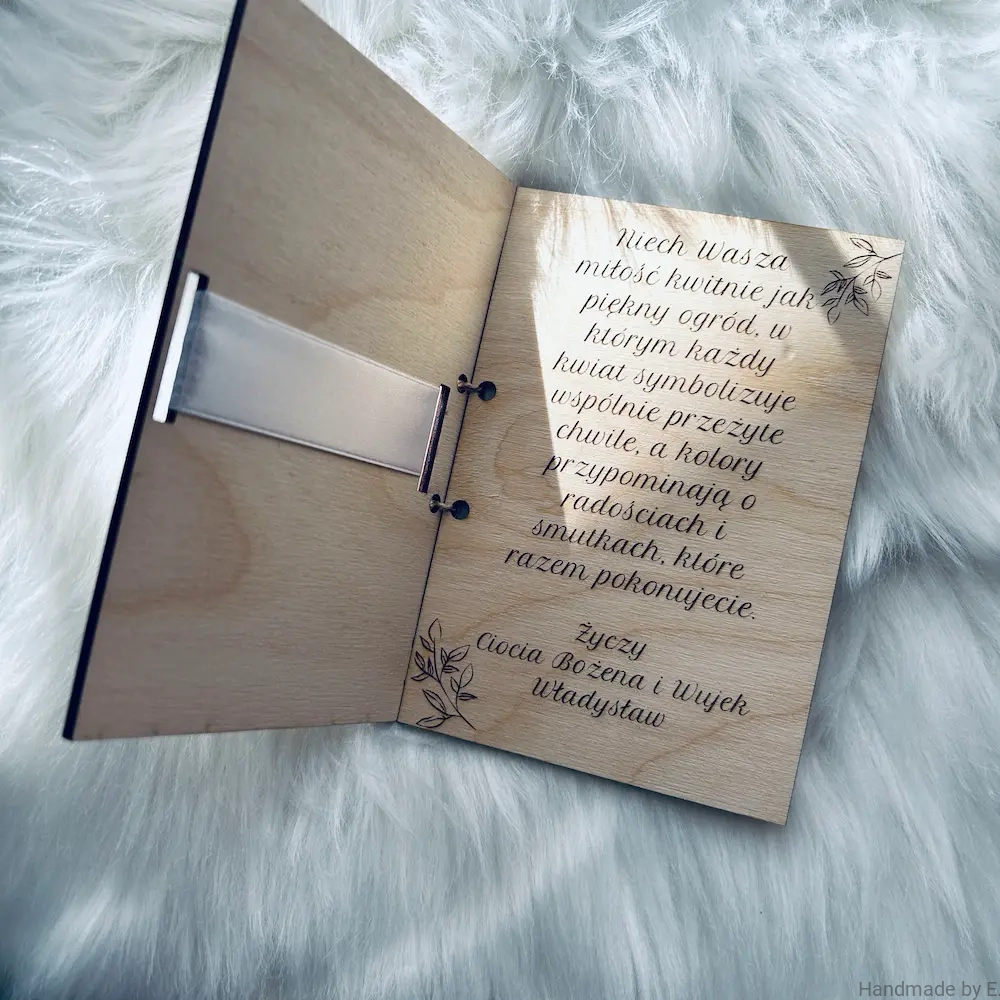 Niech Wasza
miłość kwitnie jak
piękny ogród, w
którym każdy
kwiat symbolizuje
wspólnie przeżyte
chwile, a kolory
przypominają o
radościach i
smutkach, które
razem pokonujecie.
Życzy
Ciocia Bożena i Wujek
Władysław
Handmade by E.